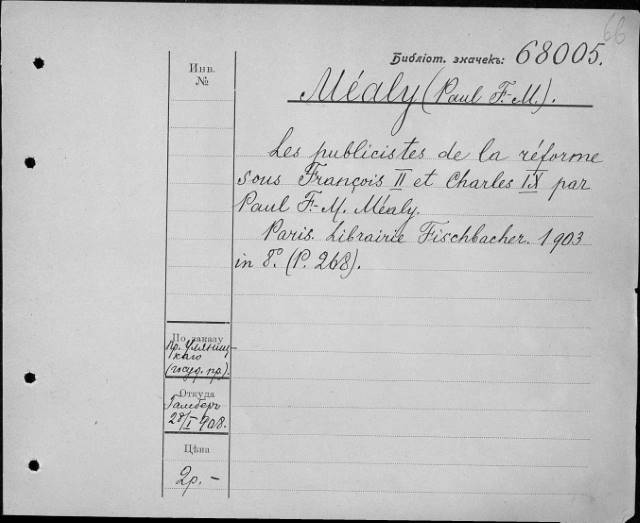 66
Библіот. значекъ: 68005.
Инв.
№
Méaly (Paul F.-M.).
Les publicistes de la réforme
sous François II et Charles IX par
Paul F.-M. Méaly.
Paris. Librairie Fischbacher. 1903
in 8°. (P. 268).
По заказу
пр. Уляниц-
каго
(госуд. пр.).
Откуда
Гамберъ
28/I 908.
Цѣна
2р. -